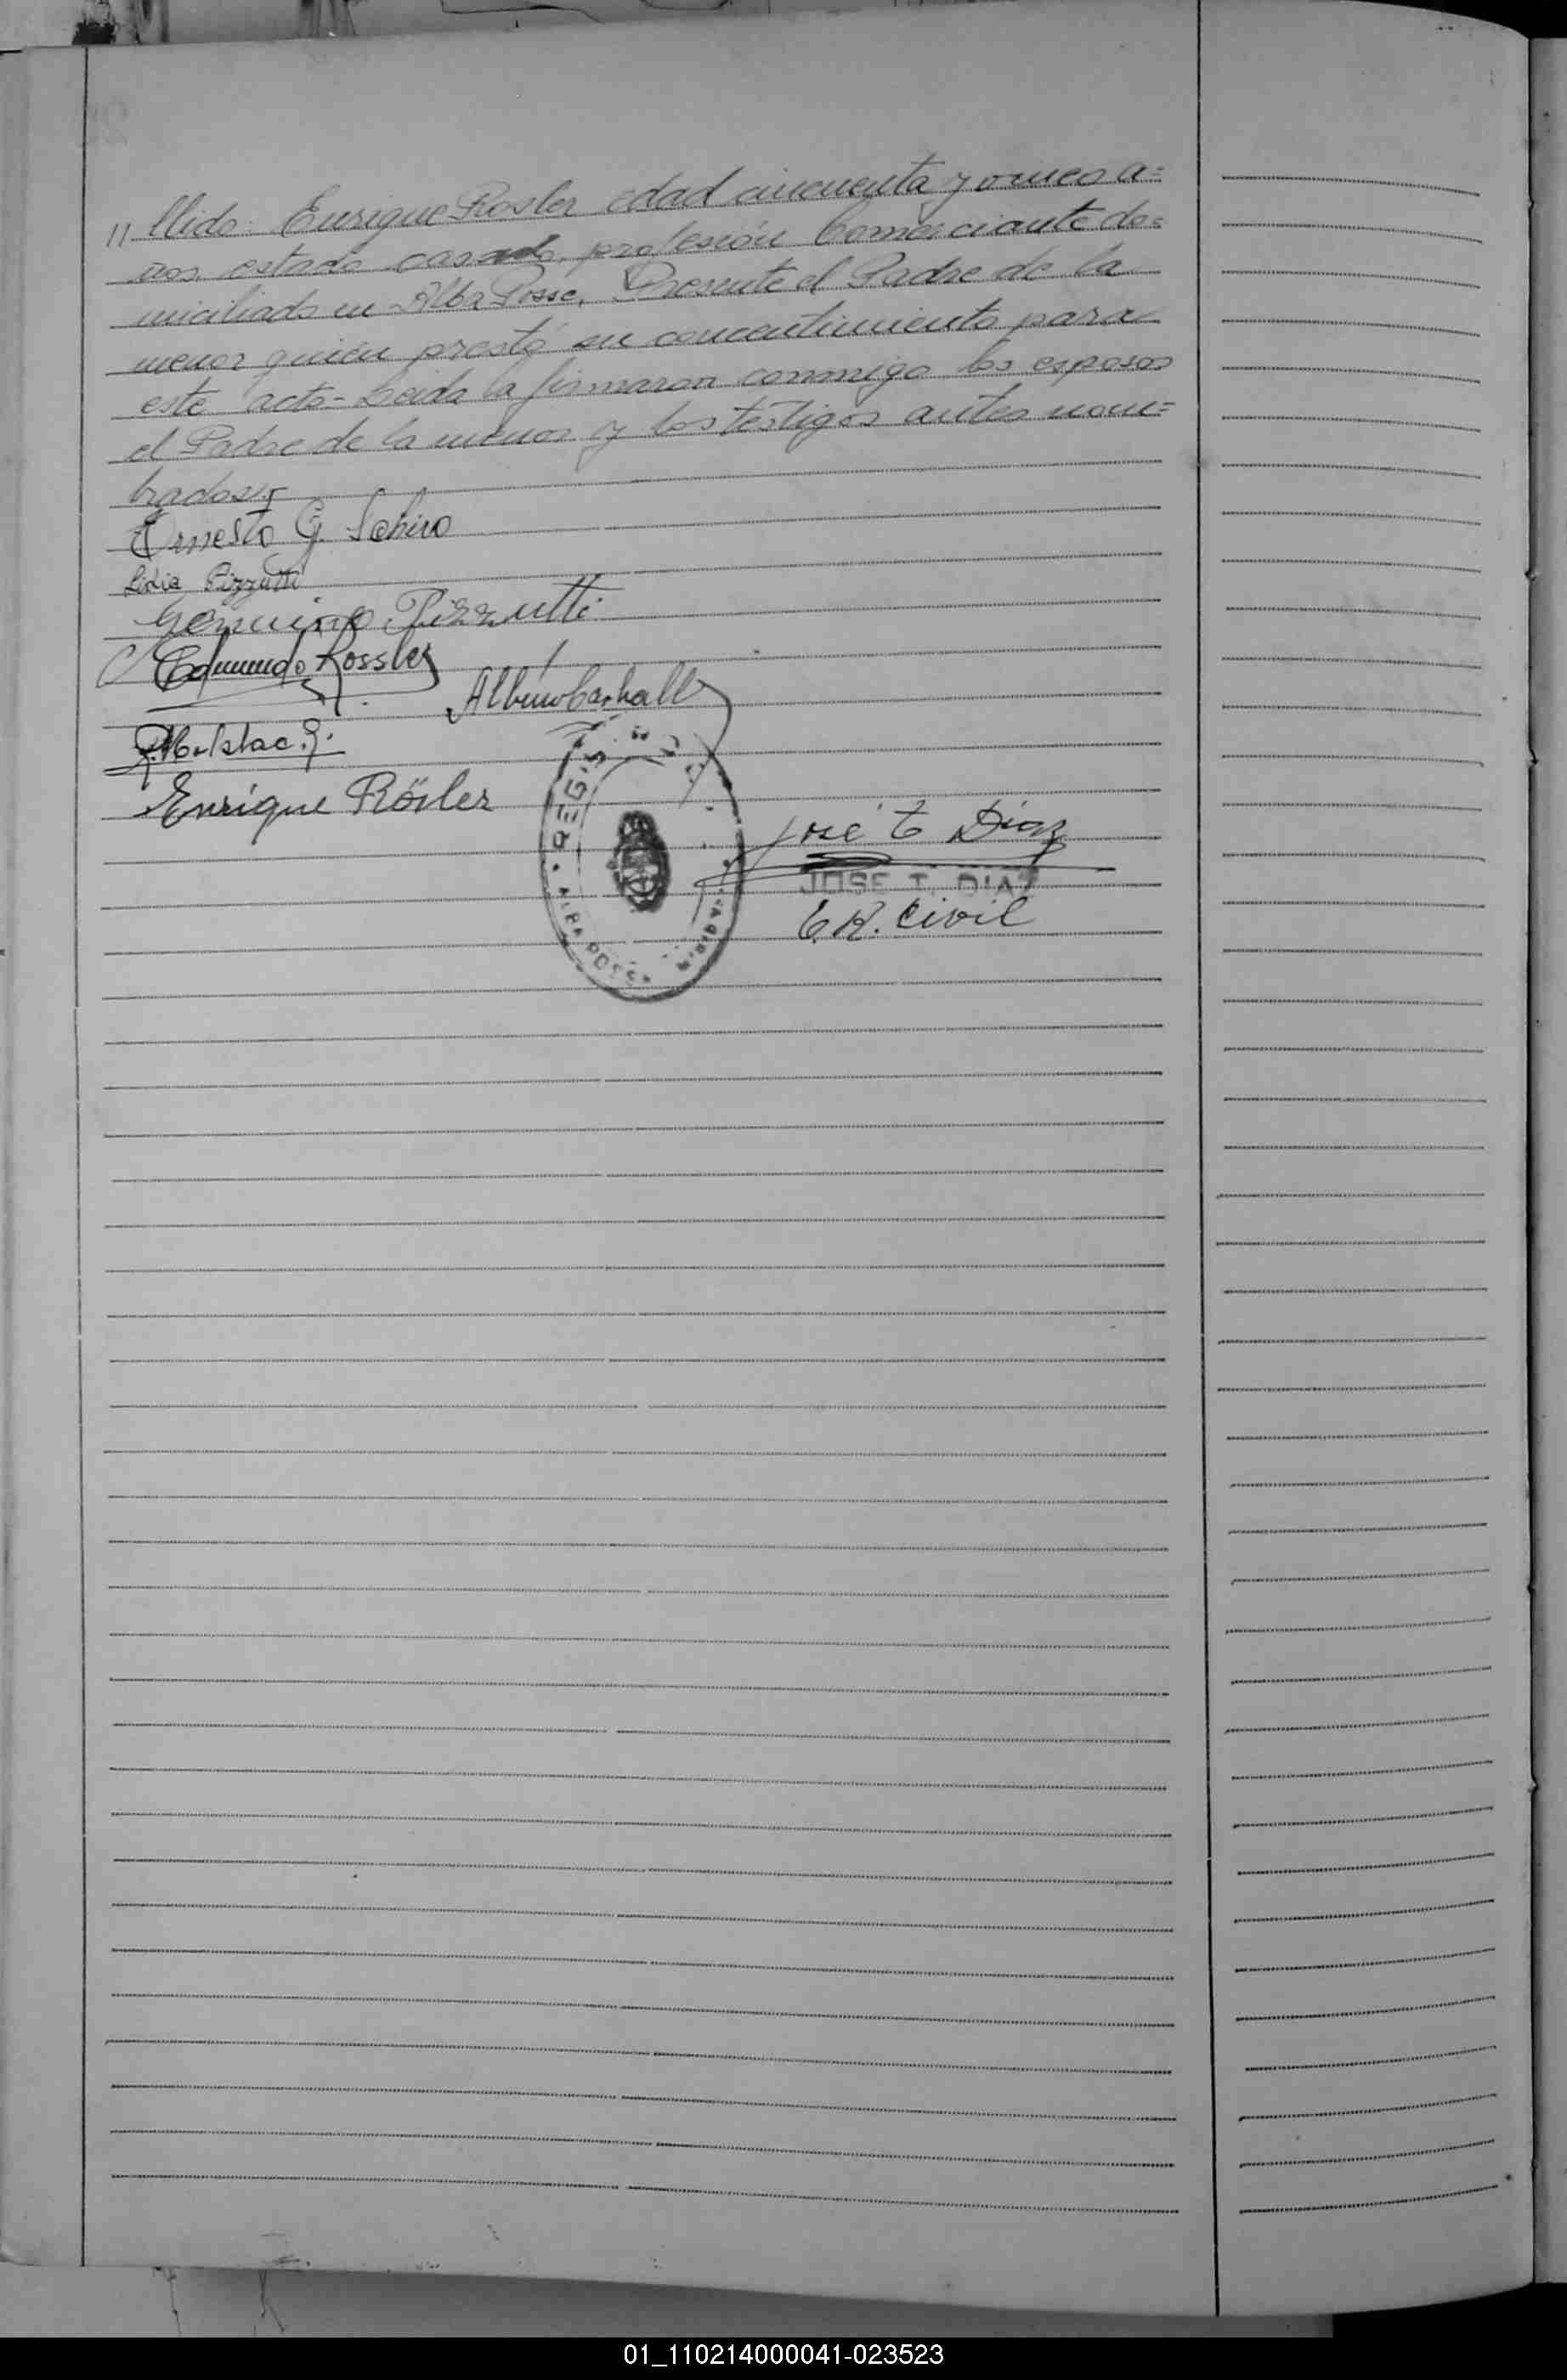 " llido: Enrique Rosler edad cincuenta y cinco a=
ños, estado casado, profesión Comerciante do=
miciliado en Alba Posse. Presente el Padre de la
menor quien prestó su concentimiento para
este acto- Leida la firmaron conmigo los esposos
el Padre de la menor y los testigos antes nom=
brados.-
Ernesto G. Schiro
Lidia Pizzutti
Genuino Pizzutti
Edmundo Rossler
Albino
Enrique Rösler
REGIS
ALBA POSSE
José T Diaz
JOSE T. DIAZ
E.R. Civil
01_110214000041-023523